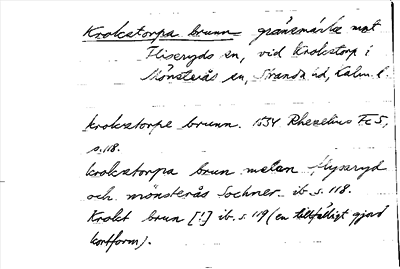 Krokstorpa brunn gränsmärke mot
Fliseryds sn, vid Krokstorp i
Mönsterås sn, Stranda hd, Kalm. l.
krokstorpe brunn. 1634 Rhezelius Fc5,
s. 118.
krokstorpa brun melan flyssryd
och mönsterås Sochner ib. s. 118.
Krokt brun [!] ib. s. 119 (en tillfälligt gjord
kortform).